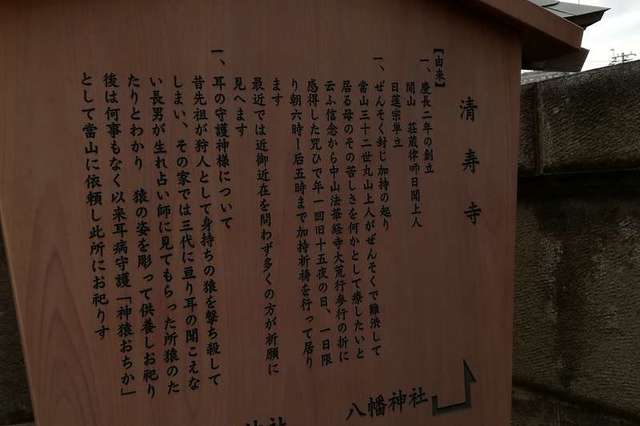 清寿寺
【由来】
一、慶長二年の創立
開山 荘蔵律師日閣上人
日蓮宗単立
一、ぜんそく封じ加持の起り
当山三十二世丸山上人がぜんそくで難渋して
居る母のその苦しさを何かとして療したいと
云ふ信念から中山法華経寺大荒行参行の折に
感得した咒ひで年一回旧十五夜の日、一日限
り朝六時〜后五時まで加持祈祷を行って居り
ます
最近では近御近在を問わず多くの方が祈願に
見へます
一、耳の守護神様について
昔先祖が狩人として身持ちの猿を撃ち殺して
しまい、その家では三代に亘り耳の聞こえな
い長男が生れ占い師に見てもらった所猿のた
たりとわかり 猿の姿を彫って供養しお祀り
後は何事もなく以来耳病守護「神猿おちか」
として當山に依頼し此所にお祀りす
八幡神社
神社